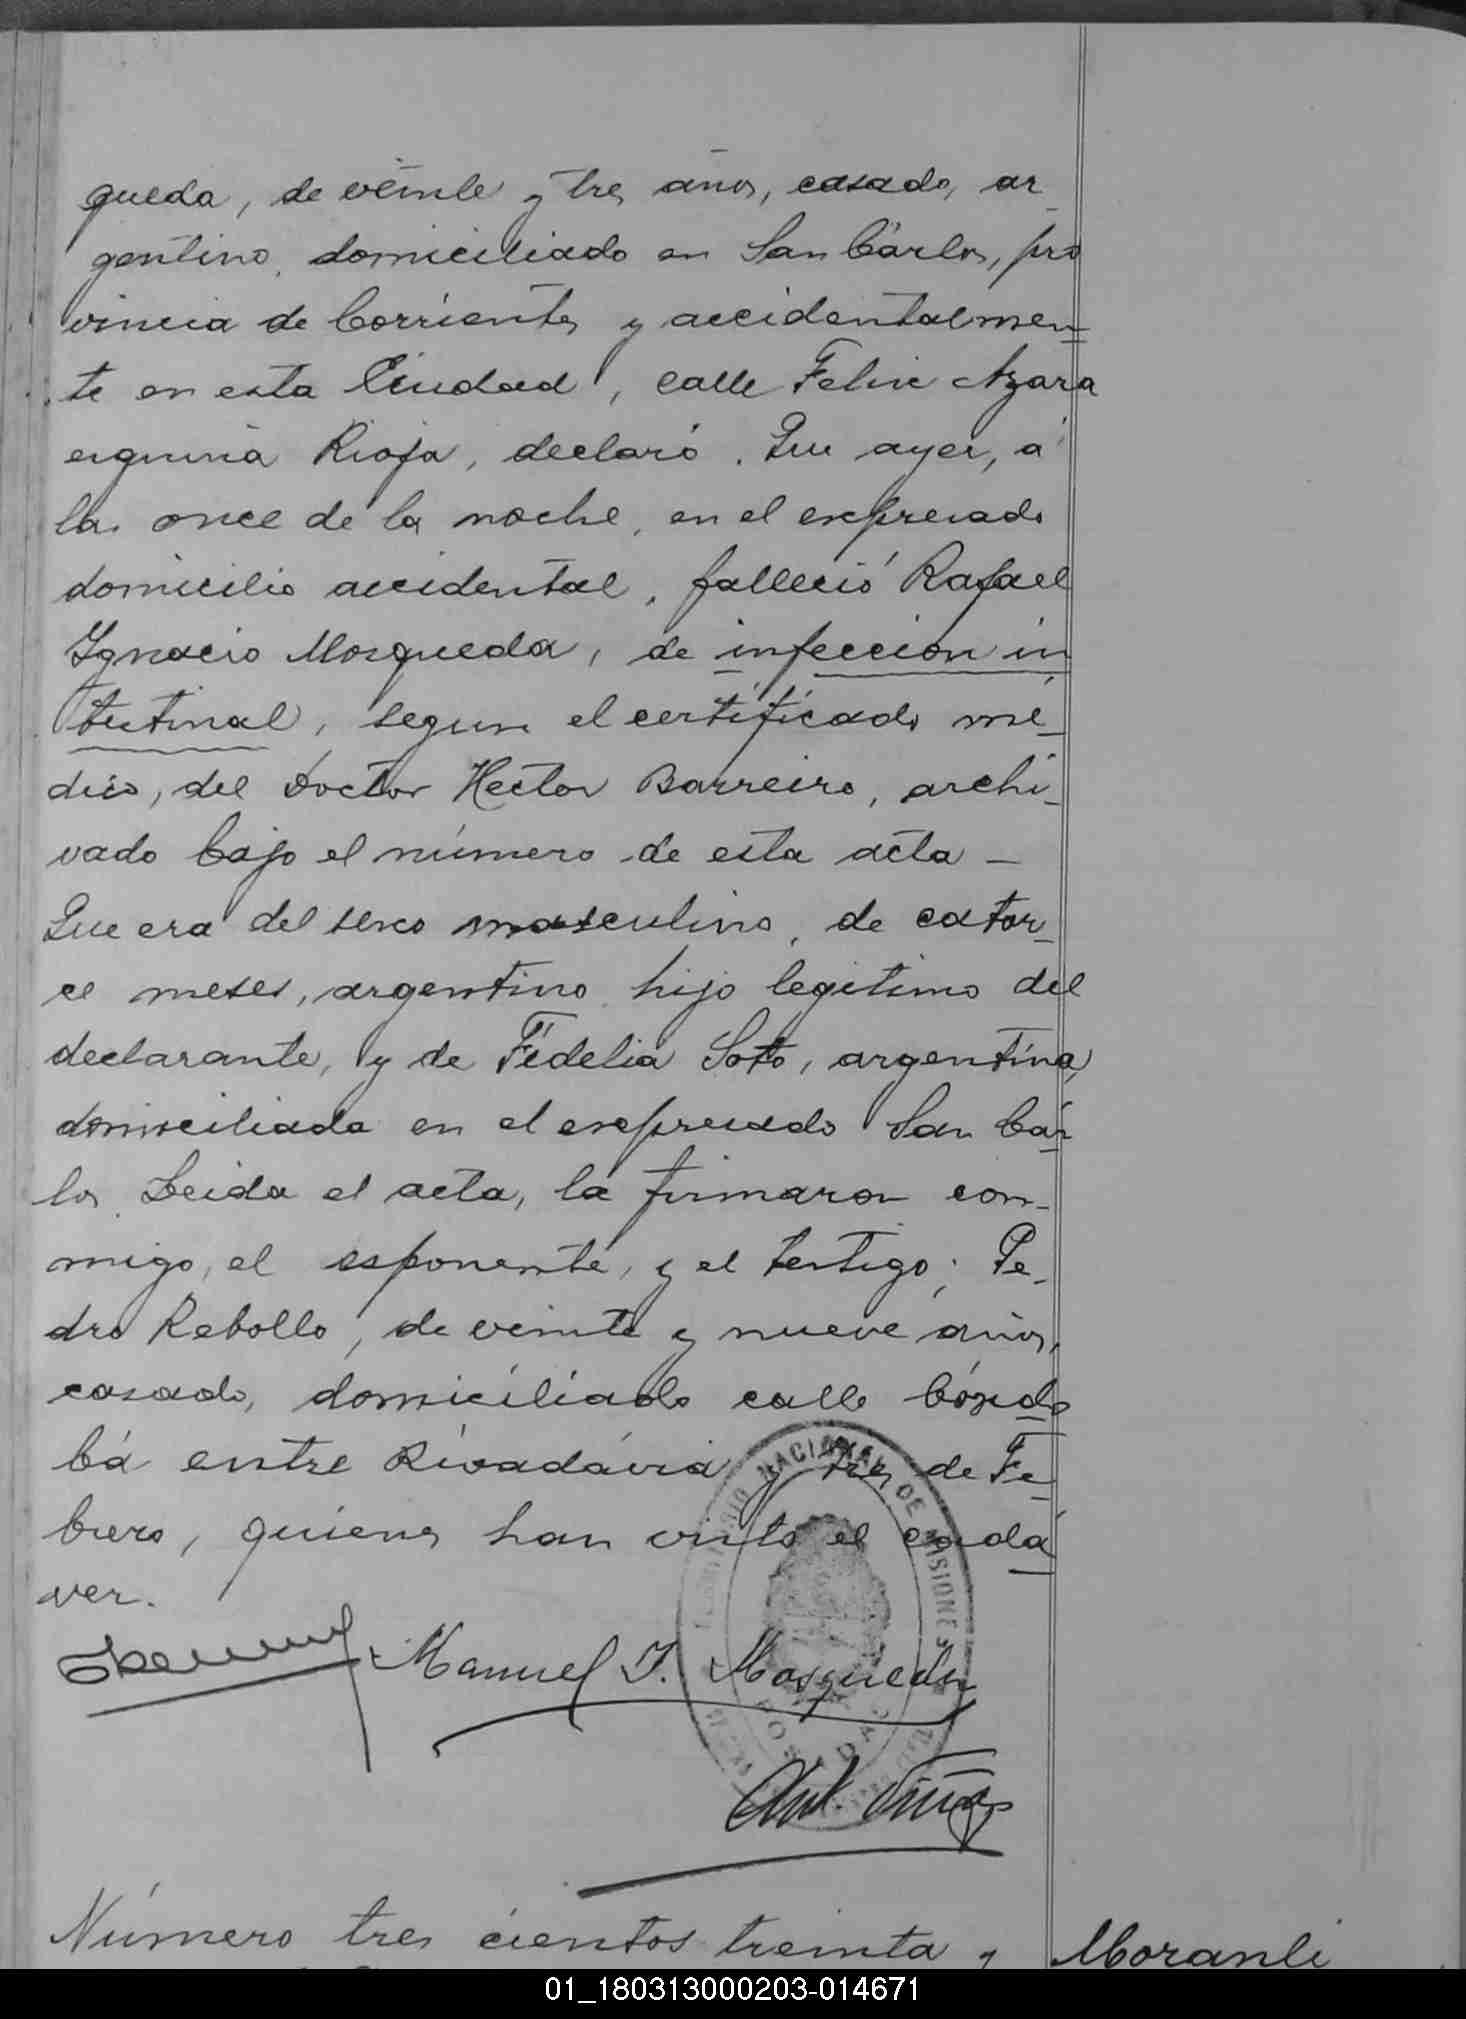 queda, de veinte y tres años, casado, ar
gentino, domiciliado en San Cárlos, pro
vincia de Corrientes y accidentalmen
te en esta Ciudad, calle Felix Azara
esquina Rioja, declaró. Que ayer, á
las once de la noche, en el expresado
domicilio accidental, falleció Rafael
Ygnacio Mosqueda, de infeccion in
testinal, segun el certificado mé
dico, del Doctor Hector Barreiro, archi
vado bajo el número de esta acta —
Que era del sexo masculino, de cator
ce meses, argentino, hijo legitimo del
declarante, y de Fidelia Soto, argentina,
domiciliada en el expresado San Cár
los. Leida el acta, la firmaron con-
migo, el esponente, y el testigo; Pe-
dro Rebollo, de veinte y nueve años,
casado, domiciliado calle Córdo
bá entre Rivadávia y tres de Fe
brero, quienes han visto el cadá
ver.
Manuel I. Mosqueda
NACIONAL DE MISIONES
POSADAS
Número tres cientos treinta y
Moranli
01_180313000203-014671